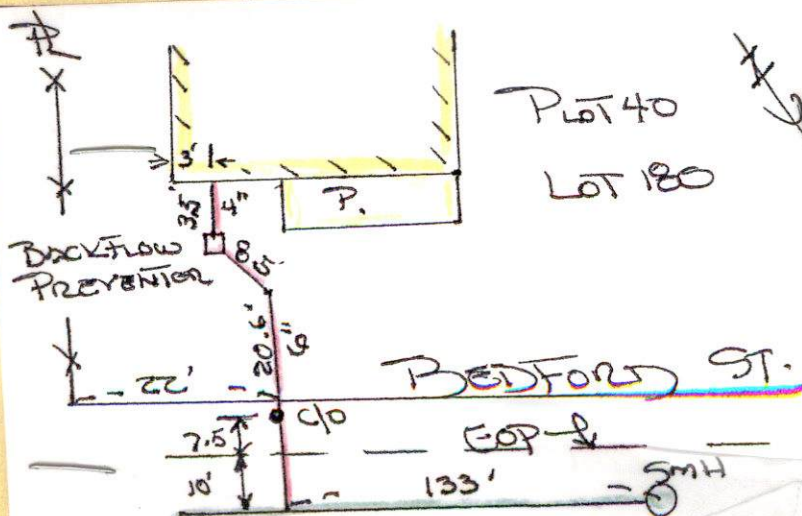 PL
PLOT 40
3'
LOT 180
P.
4"
BACKFLOW
PREVENTOR
20.6'
22'
BEDFORD ST.
C/O
7.5
EOP
10'
133'
SMH